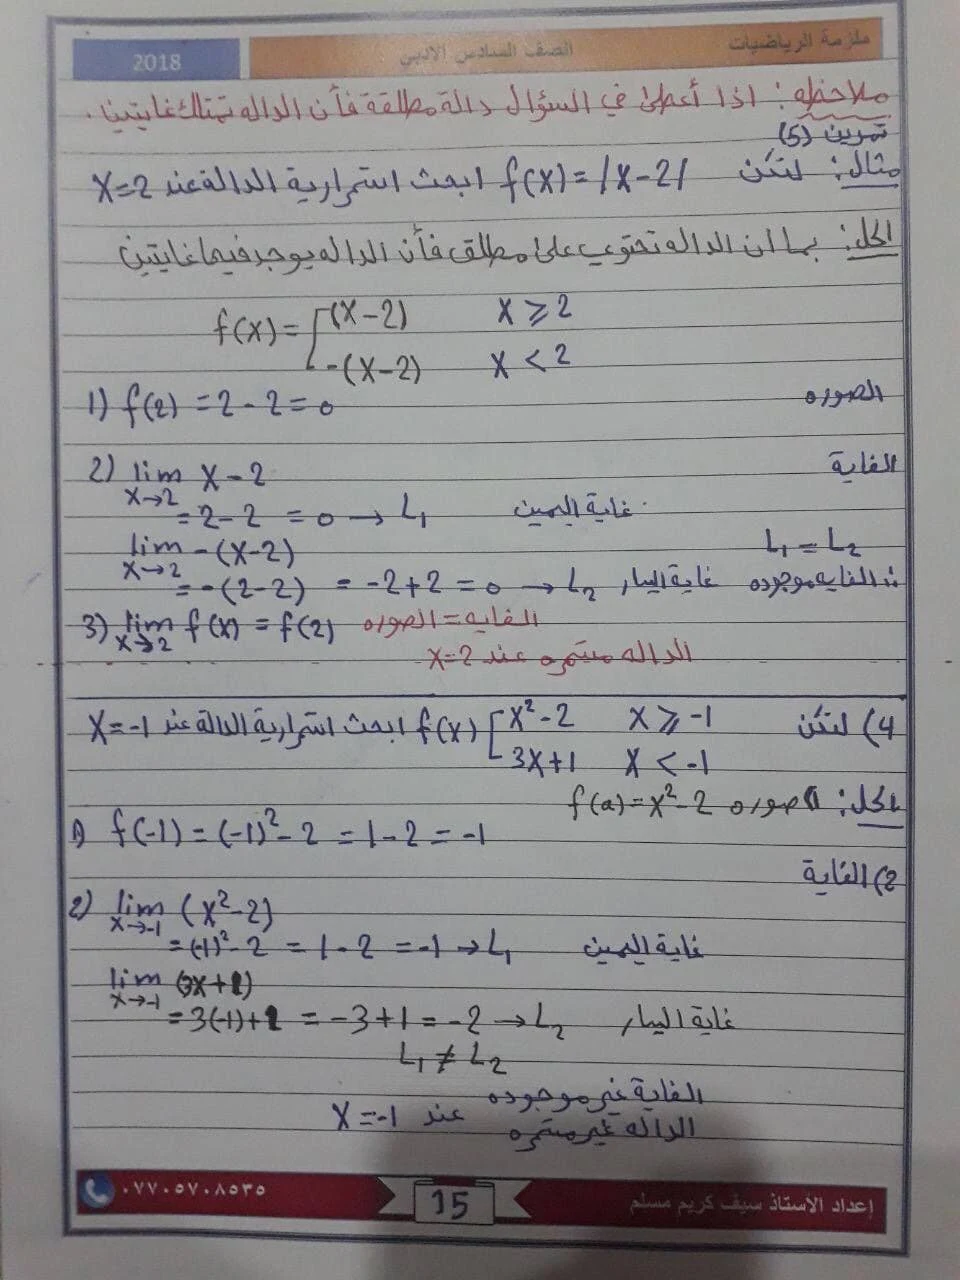 ملزمة الرياضيات الصف السادس الادبي 2018
ملاحظه: اذا أعطى في السؤال دالة مطلقة فأن الداله تمتلك غايتين.
تمرين (5)
مثال: لتكن f(x)=/x-2/ ابحث استمرارية الدالة عند x=2
الحل: بما ان الداله تحتوي على مطلق فأن الداله يوجد فيها غايتين
f(x)= (x-2) x ≥ 2
-(x-2) x < 2
1) f(2) = 2-2 = 0 الصوره
2) lim x→2 x-2 الغاية
= 2-2 = 0 → L₁ غاية اليمين
lim x→2 -(x-2) L₁ = L₂
= -(2-2) = -2+2 = 0 → L₂ غاية اليسار ∴ الغايه موجوده
3) lim x→2 f(x) = f(2) الغايه = الصوره
الداله مستمره عند x=2
4) لتكن f(x) x²-2 x ≥ -1 ابحث استمرارية الدالة عند x=-1
3x+1 x < -1
الحل: الصوره f(a)=x²-2
1) f(-1) = (-1)²-2 = 1-2 = -1
2) الغاية
2) lim x→-1 (x²-2)
= (-1)²-2 = 1-2 = -1 → L₁ غاية اليمين
lim x→-1 (3x+1)
= 3(-1)+1 = -3+1 = -2 → L₂ غاية اليسار
L₁ ≠ L₂
الغاية غير موجوده
الداله غير مستمره عند x=-1
إعداد الأستاذ سيف كريم مسلم 15 ٠٧٧٠٥٧٠٨٥٣٥